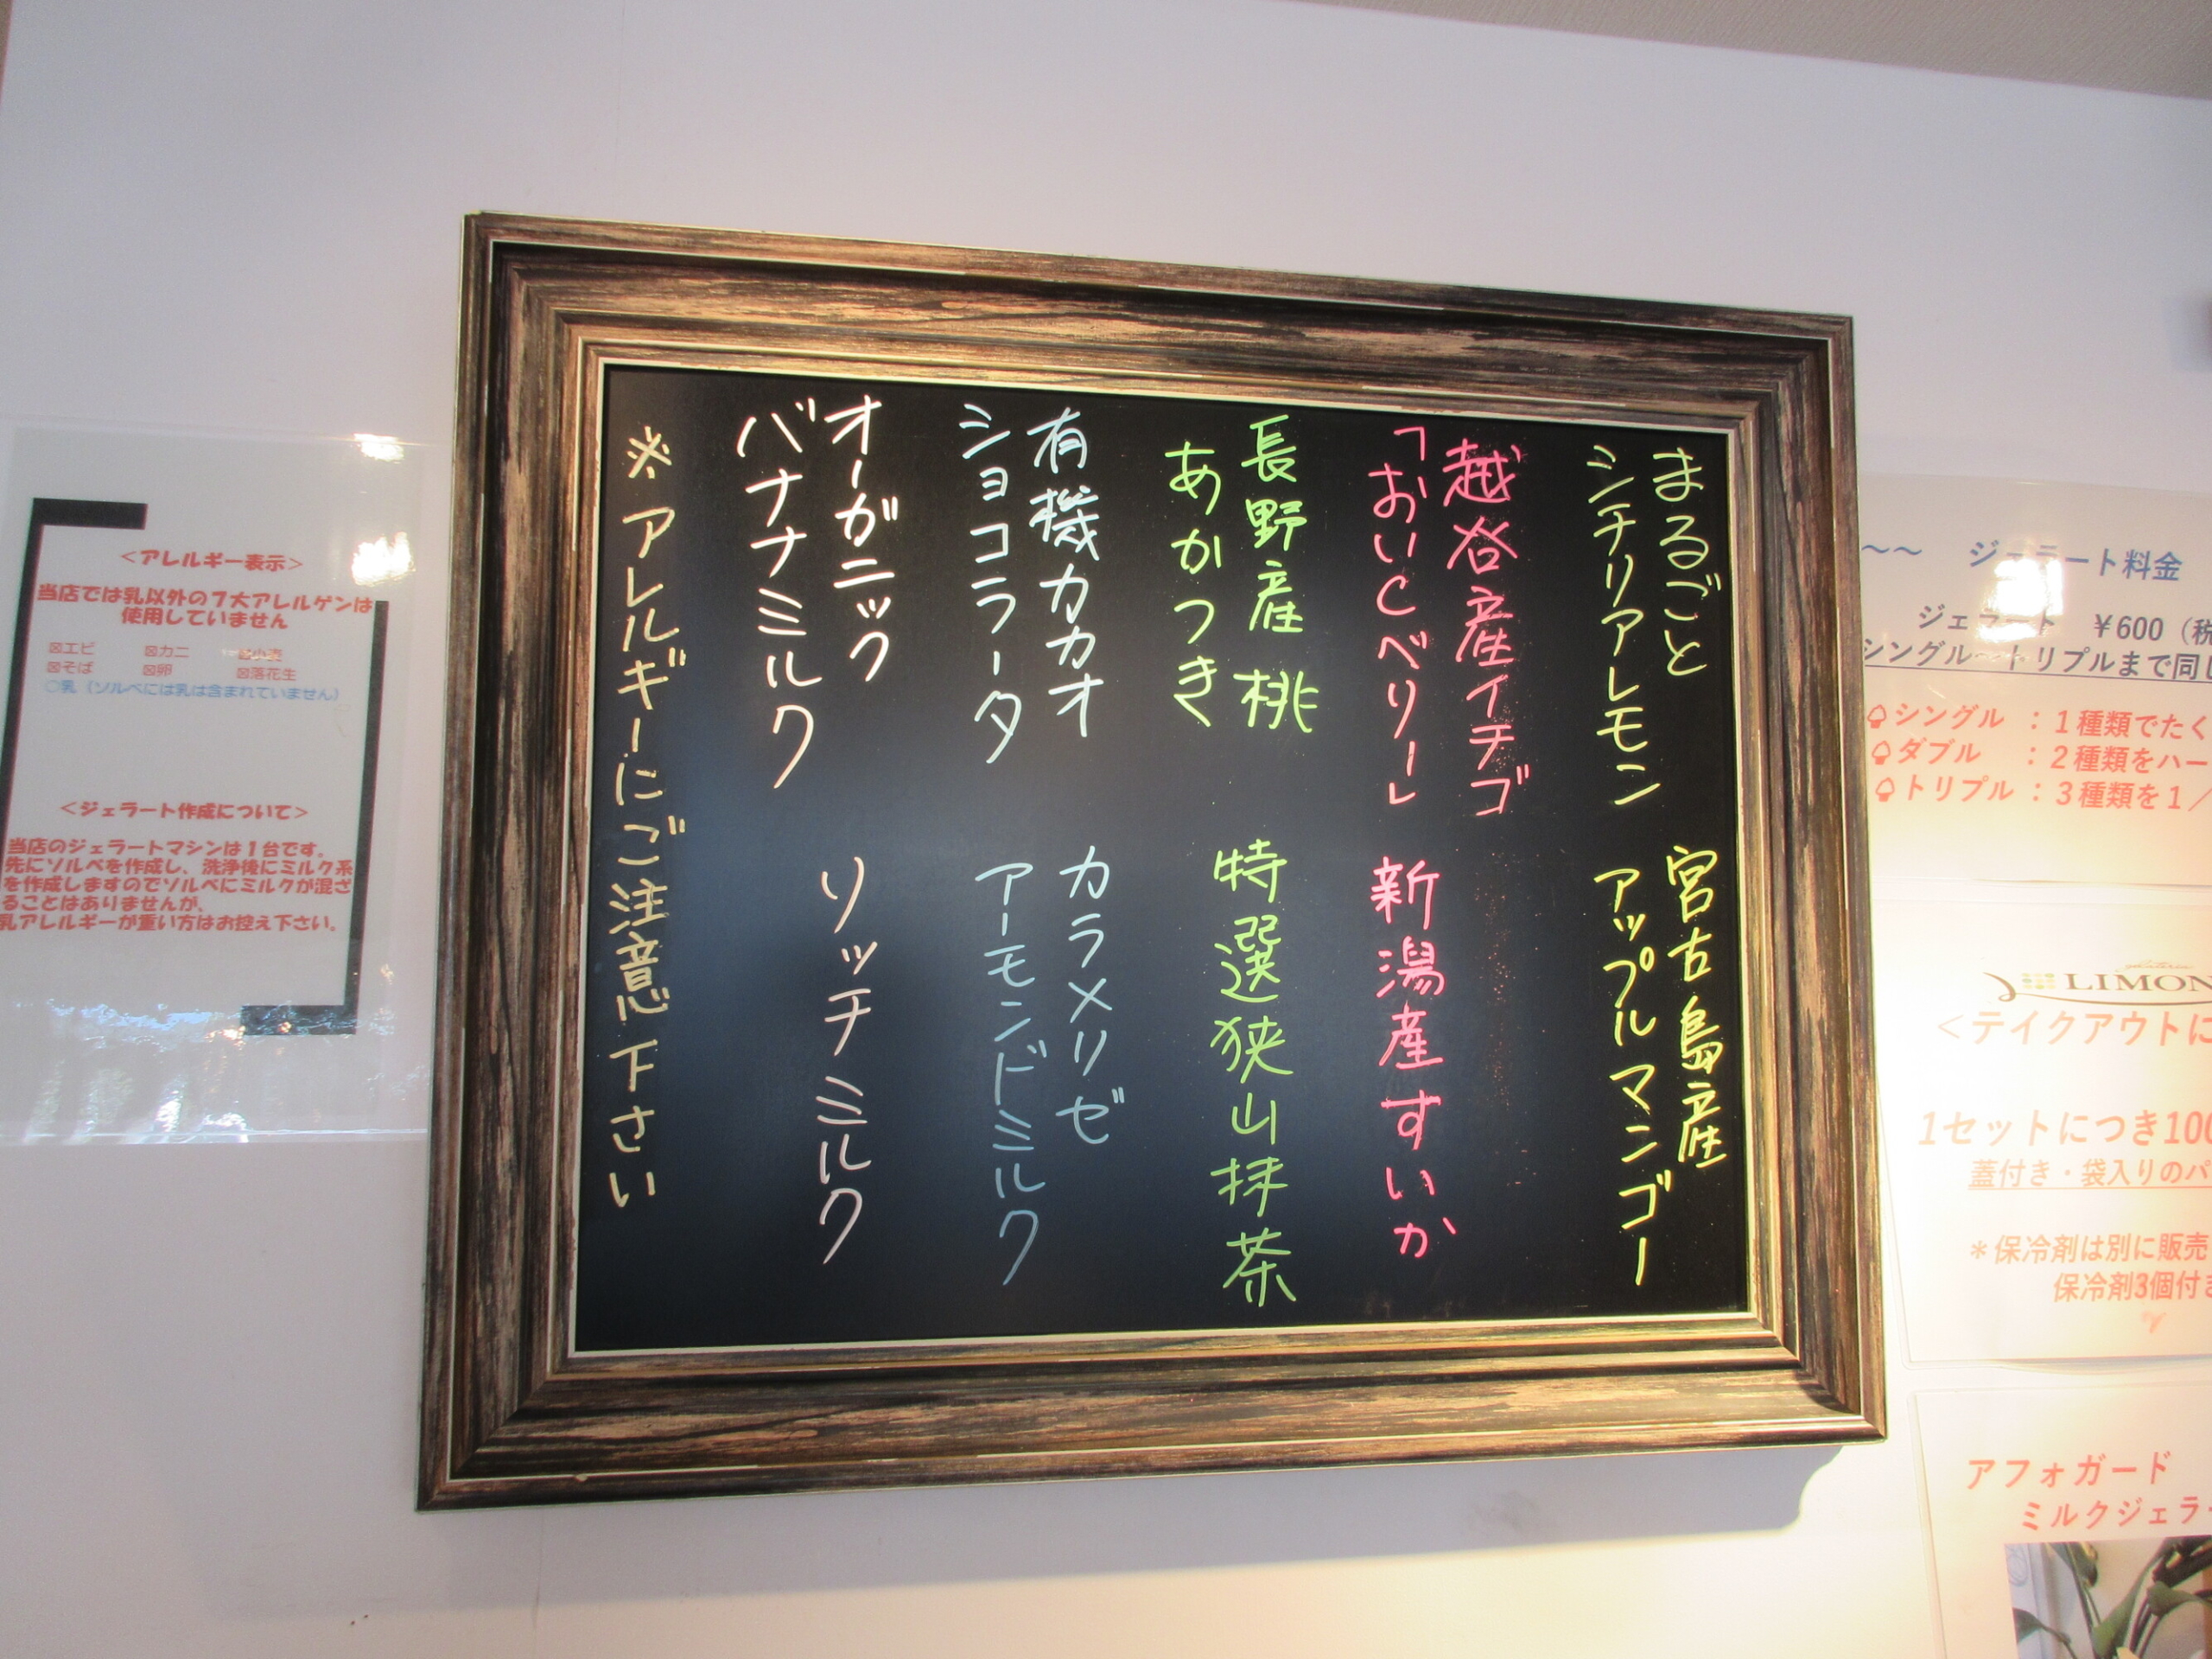 まるごと
シチリアレモン
宮古島産
アップルマンゴー
越谷産イチゴ
「おいCベリー」
新潟産すいか
長野産 桃
あかつき
特選狭山抹茶
有機カカオ
ショコラータ
カラメリゼ
アーモンドミルク
オーガニック
バナナミルク
リッチミルク
※アレルギーにご注意下さい
＜アレルギー表示＞
当店では乳以外の7大アレルゲンは
使用していません
☒エビ ☒カニ ☒小麦
☒そば ☒卵 ☒落花生
○乳（ソルベには乳は含まれていません）
＜ジェラート作成について＞
当店のジェラートマシンは1台です。
先にソルベを作成し、洗浄後にミルク系
を作成しますのでソルベにミルクが混ざ
ることはありませんが、
乳アレルギーが重い方はお控え下さい。
～～ ジェラート料金
ジェラート ￥600（税
シングル～トリプルまで同じ
シングル ：1種類でたく
ダブル ：2種類をハー
トリプル ：3種類を1／
LIMON
＜テイクアウトに
1セットにつき100
蓋付き・袋入りのパ
＊保冷剤は別に販売
保冷剤3個付き
アフォガード
ミルクジェラ